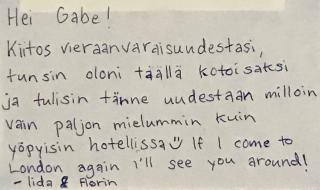 Hei Gabe!
Kiitos vieraanvaraisuudestasi,
tunsin oloni täällä kotoisaksi
ja tulisin tänne uudestaan milloin
vain paljon mielummin kuin
yöpyisin hotellissa☺ If I come to
London again i'll see you around!
- Iida & Florin